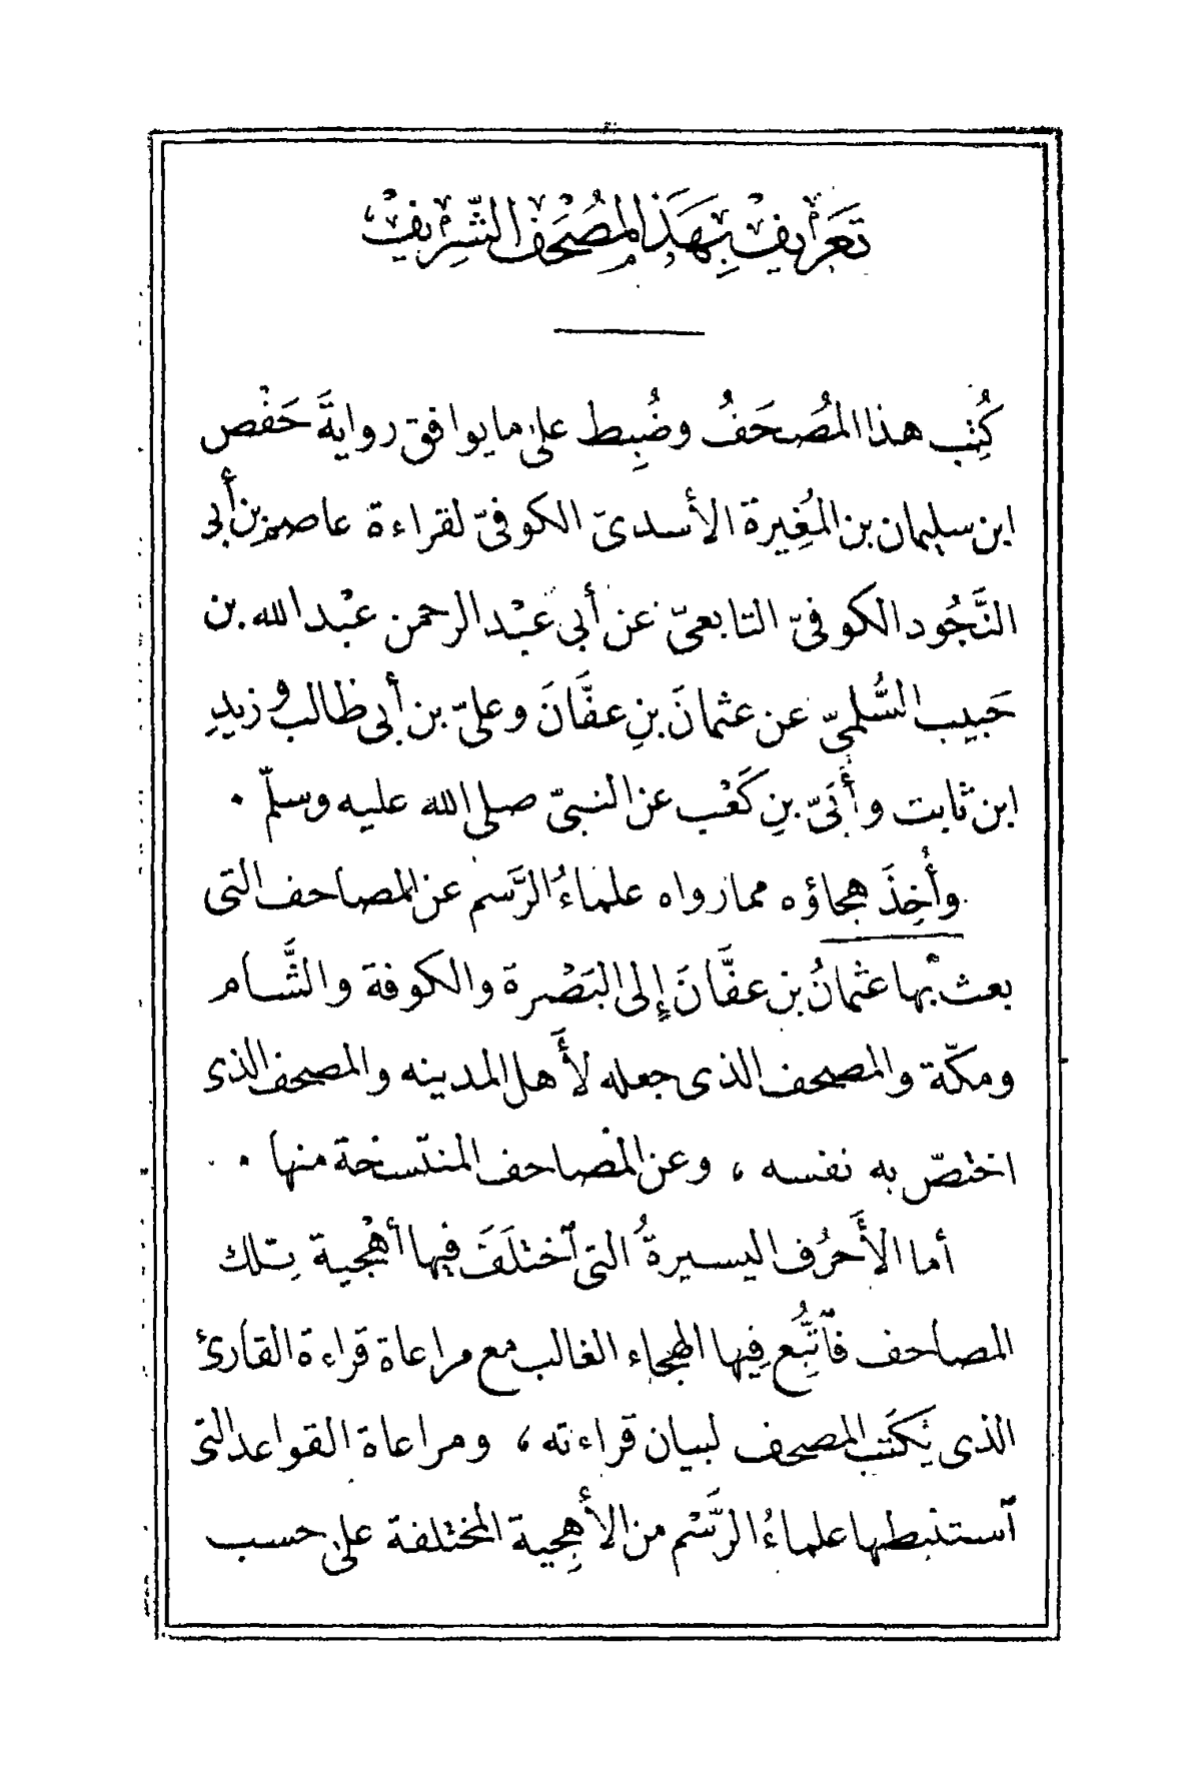 تعريف بهذا المصحف الشريف
كُتِب هذا المُصحَفُ وضُبِط على ما يوافق روايةَ حَفْص
ابن سليمان بن المُغِيرة الأسدىّ الكوفىّ لقراءة عاصم بن أَبى
النَّجُود الكوفىّ التابعىّ عن أبي عبْد الرحمن عبْد الله بن
حَبيب السُّلمىّ عن عثمانَ بنِ عفَّانَ وعلىّ بن أبى طالب وزيدِ
ابن ثابت وأُبَىّ بنِ كَعْب عن النبىّ صلى الله عليه وسلّم .
وأُخِذَ هجاؤه مما رواه علماءُ الرَّسم عن المصاحف التى
بعث بها عثمانُ بن عفَّانَ إلى البَصْرة والكوفة والشَّام
ومكّة والمصحف الذى جعله لأَهل المدينه والمصحف الذى
اختصّ به نفسه ، وعن المصاحف المنتسخة منها .
أما الأَحرُف اليسيرةُ التى ٱختلَفَ فيها أهْجية تِلك
المصاحف فٱتُّبِع فِيها الهجاء الغالب مع مراعاة قراءة القارئ
الذى يُكتَب المصحف لبيان قراءته ، ومراعاة القواعد التى
ٱستنبطها علماءُ الرَّسْم من الأَهجِية المختلفة على حسب